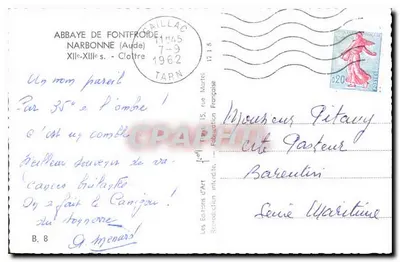 ABBAYE DE FONTFROIDE
NARBONNE (Aude)
XIIe-XIIIe s. - Cloître
GAILLAC
11H45
7-9
1962
TARN
0,20
Un nom pareil
Par 35° à l'ombre !
c'est un comble
Meilleur souvenir de
On a fait le Canigou !
B. 8
Les Editions d'Art
15, rue Martel
Reproduction interdite. - Fabrication Française
CPARAMA.COM
Monsieur Pitavy
Cité Pasteur
Barentin
Seine Maritime